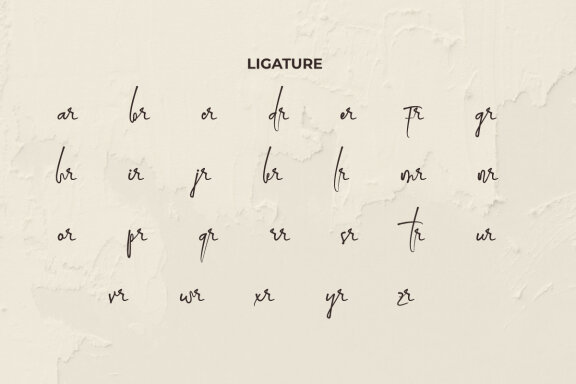 LIGATURE
ar br cr dr er Fr gr
hr ir jr kr lr mr nr
or pr qr rr sr tr ur
vr wr xr yr zr